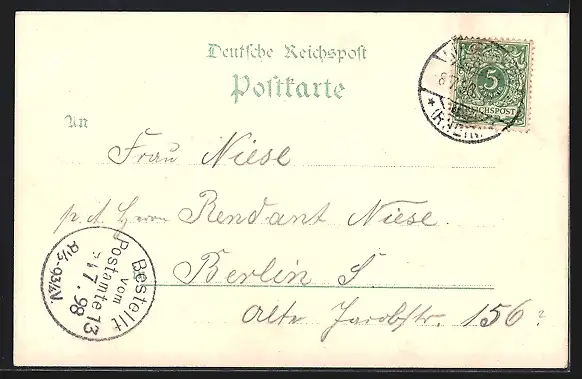 Deutsche Reichspost
Postkarte
5
REICHSPOST
An
Frau Niese
p. A. Herrn Rendant Niese.
Berlin S
Alte Jacobstr. 156?
Bestellt
vom
Postamte 13
7. 98
8½-9½V.